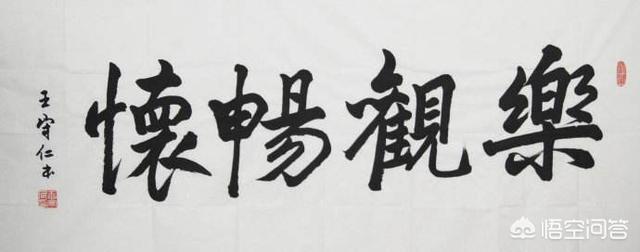 樂觀暢懷
王守仁书
悟空问答